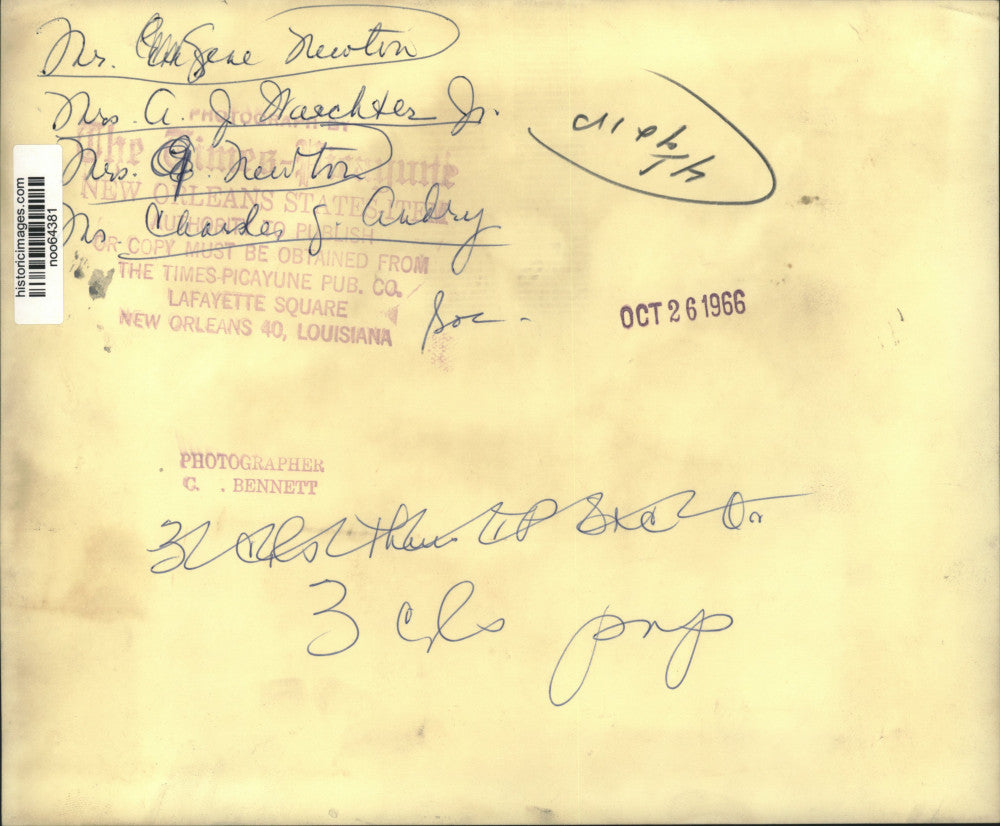 Mr. Eugene Newton
Mrs. A. J. Waechter Jr.
Mrs. Newton
Charles J. Andry
Soc -
PHOTOGRAPH BY
The Times-Picayune
NEW ORLEANS STATES-ITEM
AUTHORITY TO PUBLISH
OR COPY MUST BE OBTAINED FROM
THE TIMES-PICAYUNE PUB. CO.
LAFAYETTE SQUARE
NEW ORLEANS 40, LOUISIANA
OCT 26 1966
historicimages.com
noo64381
PHOTOGRAPHER
C. . BENNETT
3 cls Thurs TP
3 cls